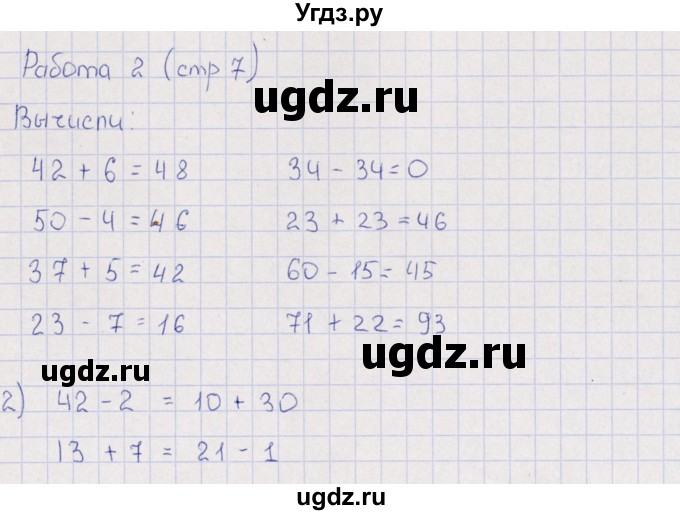 Угдз.ру
Работа 2 (стр 7)
ugdz.ru
Вычисли:
42 + 6 = 48 34 - 34 = 0
50 - 4 = 46 23 + 23 = 46
37 + 5 = 42 60 - 15 = 45
23 - 7 = 16 71 + 22 = 93
ugdz.ru
ugdz.ru
2) 42 - 2 = 10 + 30
13 + 7 = 21 - 1
ugdz.ru